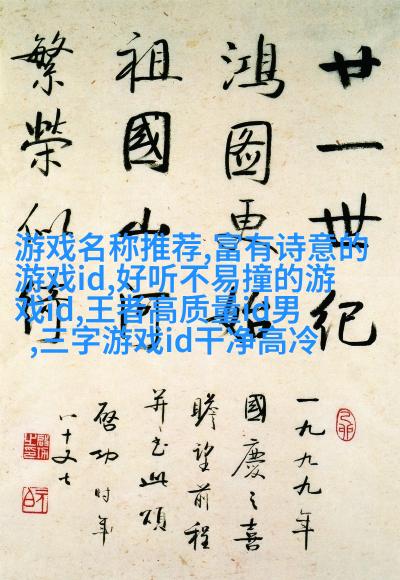 廿一世纪
鴻圖更始
祖國山河
繁榮似
一九九九年
國慶之喜
瞻望前程
并书此頌
啓功时年
八十又七
游戏名称推荐,富有诗意的
游戏id,好听不易撞的游
戏id,王者高质量id男
,三字游戏id干净高冷